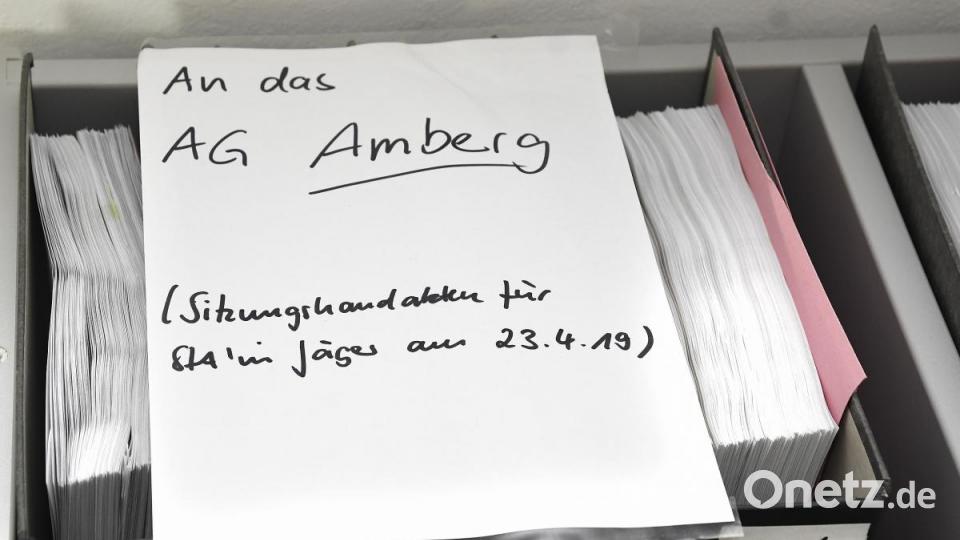 An das
AG Amberg
(Sitzungshandakten für
StA'in Jäger am 23.4.19)
Onetz.de